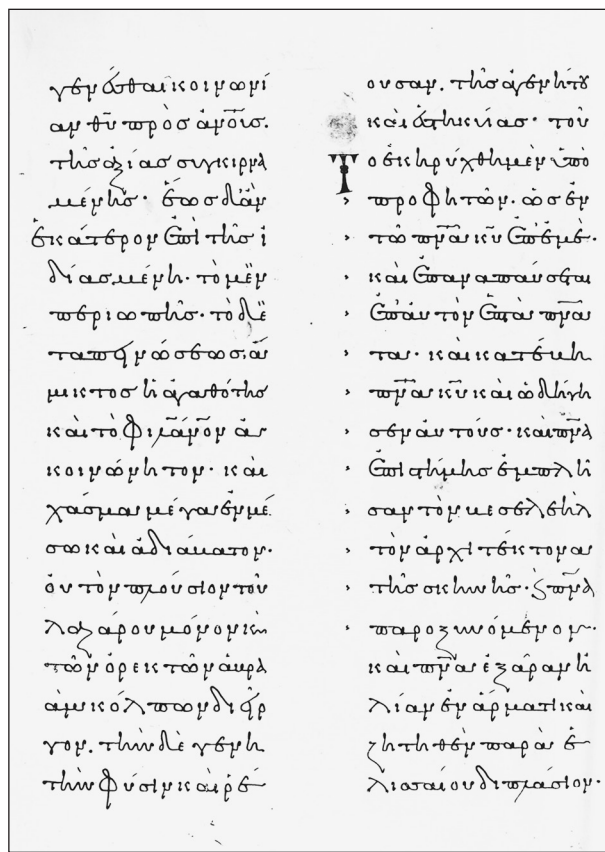 γενέσθαι κοινωνί
αν θυ πρὸς ἀνοις.
τῆς ἀξίας συγκιρνα
μένης· ἕως δ' ἂν
ἑκάτερον ἐπὶ τῆς ἰ
δίας μένη· τὸ μὲν
περιωπῆς· τὸ δὲ
ταπεινώσεως, ἄ
μικτος ἡ ἀγαθότης
καὶ τὸ φιλάνον ἀκ
κοινώνητον· καὶ
χάσμα μέγα ἐν μέ
σω καὶ ἀδιάβατον·
οὐ τὸν πλούσιον τοῦ
λαζάρου μόνον καὶ
τῶν ὀρεκτῶν ἀβρα
ὰμ κόλπων διεῖρ
γον. τὴν δὲ γενη
τὴν φύσιν καὶ ῥέ
ουσαν. τῆς ἀγενήτου
καὶ ἑστηκυίας· τοῦ
Το ἐκηρύχθη μὲν ὑπὸ
προφητῶν· ὡς ἐν
τῶ πνα κυ ἐπ' ἐμὲ·
καὶ ἐπαναπαύσεται
ἐπ' αὐτὸν ἑπτὰ πνα
τα· καὶ κατέβη
πνα κυ καὶ ὡδήγη
σεν αὐτούς· καὶ πνα
ἐπιστήμης ἐμπλῆ
σαν τὸν βεσελεὴλ
τὸν ἀρχιτέκτονα
τῆς σκηνῆς· ϗ πνα
παροξυνόμενον·
καὶ πνα ἐξᾶραν ἠ
λίαν ἐν ἅρματι καὶ
ζητηθὲν παρὰ ἐ
λισαίου διπλάσιον·